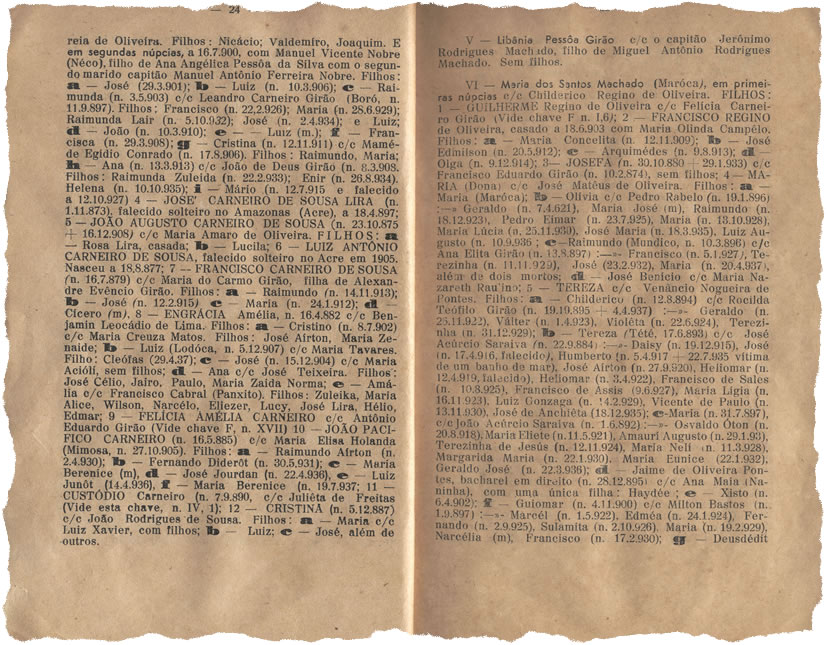 — 24
reia de Oliveira. Filhos: Nicácio; Valdemiro, Joaquim. E
em segundas núpcias, a 16.7.900, com Manuel Vicente Nobre
(Néco), filho de Ana Angélica Pessôa da Silva com o segun-
do marido capitão Manuel Antônio Ferreira Nobre. Filhos:
a — José (29.3.901); b — Luiz (n. 10.3.906); c — Rai-
munda (n. 3.5.903) c/c Leandro Carneiro Girão (Boró, n.
11.9.897). Filhos: Francisco (n. 22.2.926); Maria (n. 28.6.929);
Raimunda Lair (n. 5.10.932); José (n. 2.4.934); e Luiz;
d — João (n. 10.3.910); e — Luiz (m.); f — Fran-
cisca (n. 29.3.908); g — Cristina (n. 12.11.911) c/c Mamé-
de Egidio Conrado (n. 17.8.906). Filhos: Raimundo, Maria;
h — Ana (n. 13.3.913) c/c João de Deus Girão (n. 8.3.908.
Filhos: Raimunda Zuleida (n. 22.2.933); Enir (n. 26.8.934),
Helena (n. 10.10.935); i — Mário (n. 12.7.915 e falecido
a 12.10.927) 4 — JOSE' CARNEIRO DE SOUSA LIRA (n.
1.11.873), falecido solteiro no Amazonas (Acre), a 18.4.897;
5 — JOÃO AUGUSTO CARNEIRO DE SOUSA (n. 23.10.875
+ 16.12.908) c/c Maria Amaro de Oliveira. FILHOS: a
— Rosa Lira, casada; b — Lucila; 6 — LUIZ ANTÔNIO
CARNEIRO DE SOUSA, falecido solteiro no Acre em 1905.
Nasceu a 18.8.877; 7 — FRANCISCO CARNEIRO DE SOUSA
(n. 16.7.879) c/c Maria do Carmo Girão, filha de Alexan-
dre Evêncio Girão. Filhos: a — Raimundo (n. 14.11.913);
b — José (n. 12.2.915) c — Maria (n. 24.1.912); d —
Cícero (m). 8 — ENGRÁCIA Amélia, n. 16.4.882 c/c Ben-
jamin Leocádio de Lima. Filhos: a — Cristino (n. 8.7.902)
c/c Maria Creuza Matos. Filhos: José Airton, Maria Ze-
naide; b — Luiz (Lodóca, n. 5.12.907) c/c Maria Tavares.
Filho: Cleófas (29.4.37); c — José (n. 15.12.904) c/c Maria
Acióli, sem filhos; d — Ana c/c José Teixeira. Filhos:
José Célio, Jairo, Paulo, Maria Zaida Norma; e — Amá-
lia c/c Francisco Cabral (Panxito). Filhos: Zuleika, Maria
Alice, Wilson, Narcélo, Eliezer, Lucy, José Lira, Hélio,
Edmar; 9 — FELÍCIA AMÉLIA CARNEIRO c/c Antônio
Eduardo Girão (Vide chave F, n. XVII) 10 — JOÃO PACI-
FICO CARNEIRO (n. 16.5.885) c/c Maria Elisa Holanda
(Mimosa, n. 27.10.905). Filhos: a — Raimundo Airton (n.
2.4.930); b — Fernando Diderôt (n. 30.5.931); c — Maria
Berenice (m), d — José Jourdan (n. 22.4.936), e — Luiz
Junôt (14.4.936), f — Maria Berenice (n. 19.7.937; 11 —
CUSTÓDIO Carneiro (n. 7.9.890, c/c Juliêta de Freitas
(Vide esta chave, n. IV, 1); 12 — CRISTINA (n. 5.12.887)
c/c João Rodrigues de Sousa. Filhos: a — Maria c/c
Luiz Xavier, com filhos; b — Luiz; c — José, além de
outros.
V — Libânia Pessôa Girão c/c o capitão Jerônimo
Rodrigues Machado, filho de Miguel Antônio Rodrigues
Machado. Sem filhos.
VI — Maria dos Santos Machado (Maróca), em primei-
ras núpcias c/c Childerico Regino de Oliveira. FILHOS:
1 — GUILHERME Regino de Oliveira c/c Felícia Carnei-
ro Girão (Vide chave F n. I,6); 2 — FRANCISCO REGINO
de Oliveira, casado a 18.6.903 com Maria Olinda Campêlo.
Filhos: a — Maria Concelita (n. 12.11.909); b — José
Edmilson (n. 20.5.912); c — Arquimédes (n. 9.8.913); d —
Olga (n. 9.12.914); 3— JOSEFA (n. 30.10.880 + 29.1.933) c/c
Francisco Eduardo Girão (n. 10.2.874), sem filhos; 4 — MA-
RIA (Dona) c/c José Matêus de Oliveira. Filhos: a —
Maria (Maróca); b — Olívia c/c Pedro Rabelo (n. 19.1.896)
:—»- Geraldo (n. 7.4.621), Maria José (m), Raimundo (n.
18.12.923), Pedro Eimar (n. 23.7.925), Maria (n. 13.10.928),
Maria Lúcia (n. 25.11.930), José Maria (n. 18.3.935), Luiz Au-
gusto (n. 10.9.936 ; c—Raimundo (Mundico, n. 10.3.896) c/c
Ana Elita Girão (n. 13.8.897) :—»- Francisco (n. 5.1.927), Te-
rezinha (n. 11.11.929), José (23.2.932), Maria (n. 20.4.937),
além de dois mortos; d — José Benício c/c Maria Na-
zareth Raulino; 5 — TEREZA c/c Venâncio Nogueira de
Pontes. Filhos: a — Childerico (n. 12.8.894) c/c Rocilda
Teófilo Girão (n. 19.19.895 + 4.4.937) :—»- Geraldo (n.
25.11.922), Válter (n. 1.4.923), Violêta (n. 22.6.924), Terezi-
nha (n. 31.12.929); b — Tereza (Tété, 17.6.893) c/c José
Acúrcio Saraiva (n. 22.9.884) :—»- Daisy (n. 19.12.915), José
(n. 17.4.916, falecido), Humberto (n. 5.4.917 + 22.7.935 vítima
de um banho de mar), José Airton (n. 27.9.920), Heliomar (n.
12.4.919, falecido), Heliomar (n. 3.4.922), Francisco de Sales
(n. 10.3.925), Francisco de Assis (9.6.927), Maria Ligia (n.
16.11.923), Luiz Gonzaga (n. 2.929), Vicente de Paulo (n.
13.11.930), José de Anchiêta (18.12.935); c-Maria (n. 31.7.897),
c/c João Acúrcio Saraiva (n. 1.6.892) :—»- Osvaldo Óton (n.
20.8.918), Maria Eliete (n. 11.5.921), Amauri Augusto (n. 29.1.93),
Terezinha de Jesús (n. 12.11.924), Maria Neli (n. 11.3.928),
Margarida Maria (n. 22.1.930), Maria Eunice (22.1.932),
Geraldo José (n. 22.3.936); d — Jaime de Oliveira Pon-
tes, bacharel em direito (n. 28.12.895) c/c Ana Maia (Na-
ninha), com uma única filha: Haydée ; e — Xisto (n.
6.4.902); f — Guiomar (n. 4.11.900) c/c Milton Bastos (n.
1.9.897) :—»- Marcél (n. 1.5.922), Edméa (n. 24.1.924), Fer-
nando (n. 2.9.925), Sulamita (n. 2.10.926), Maria (n. 19.2.929),
Narcélia (m), Francisco (n. 17.2.930); g — Deusdédit